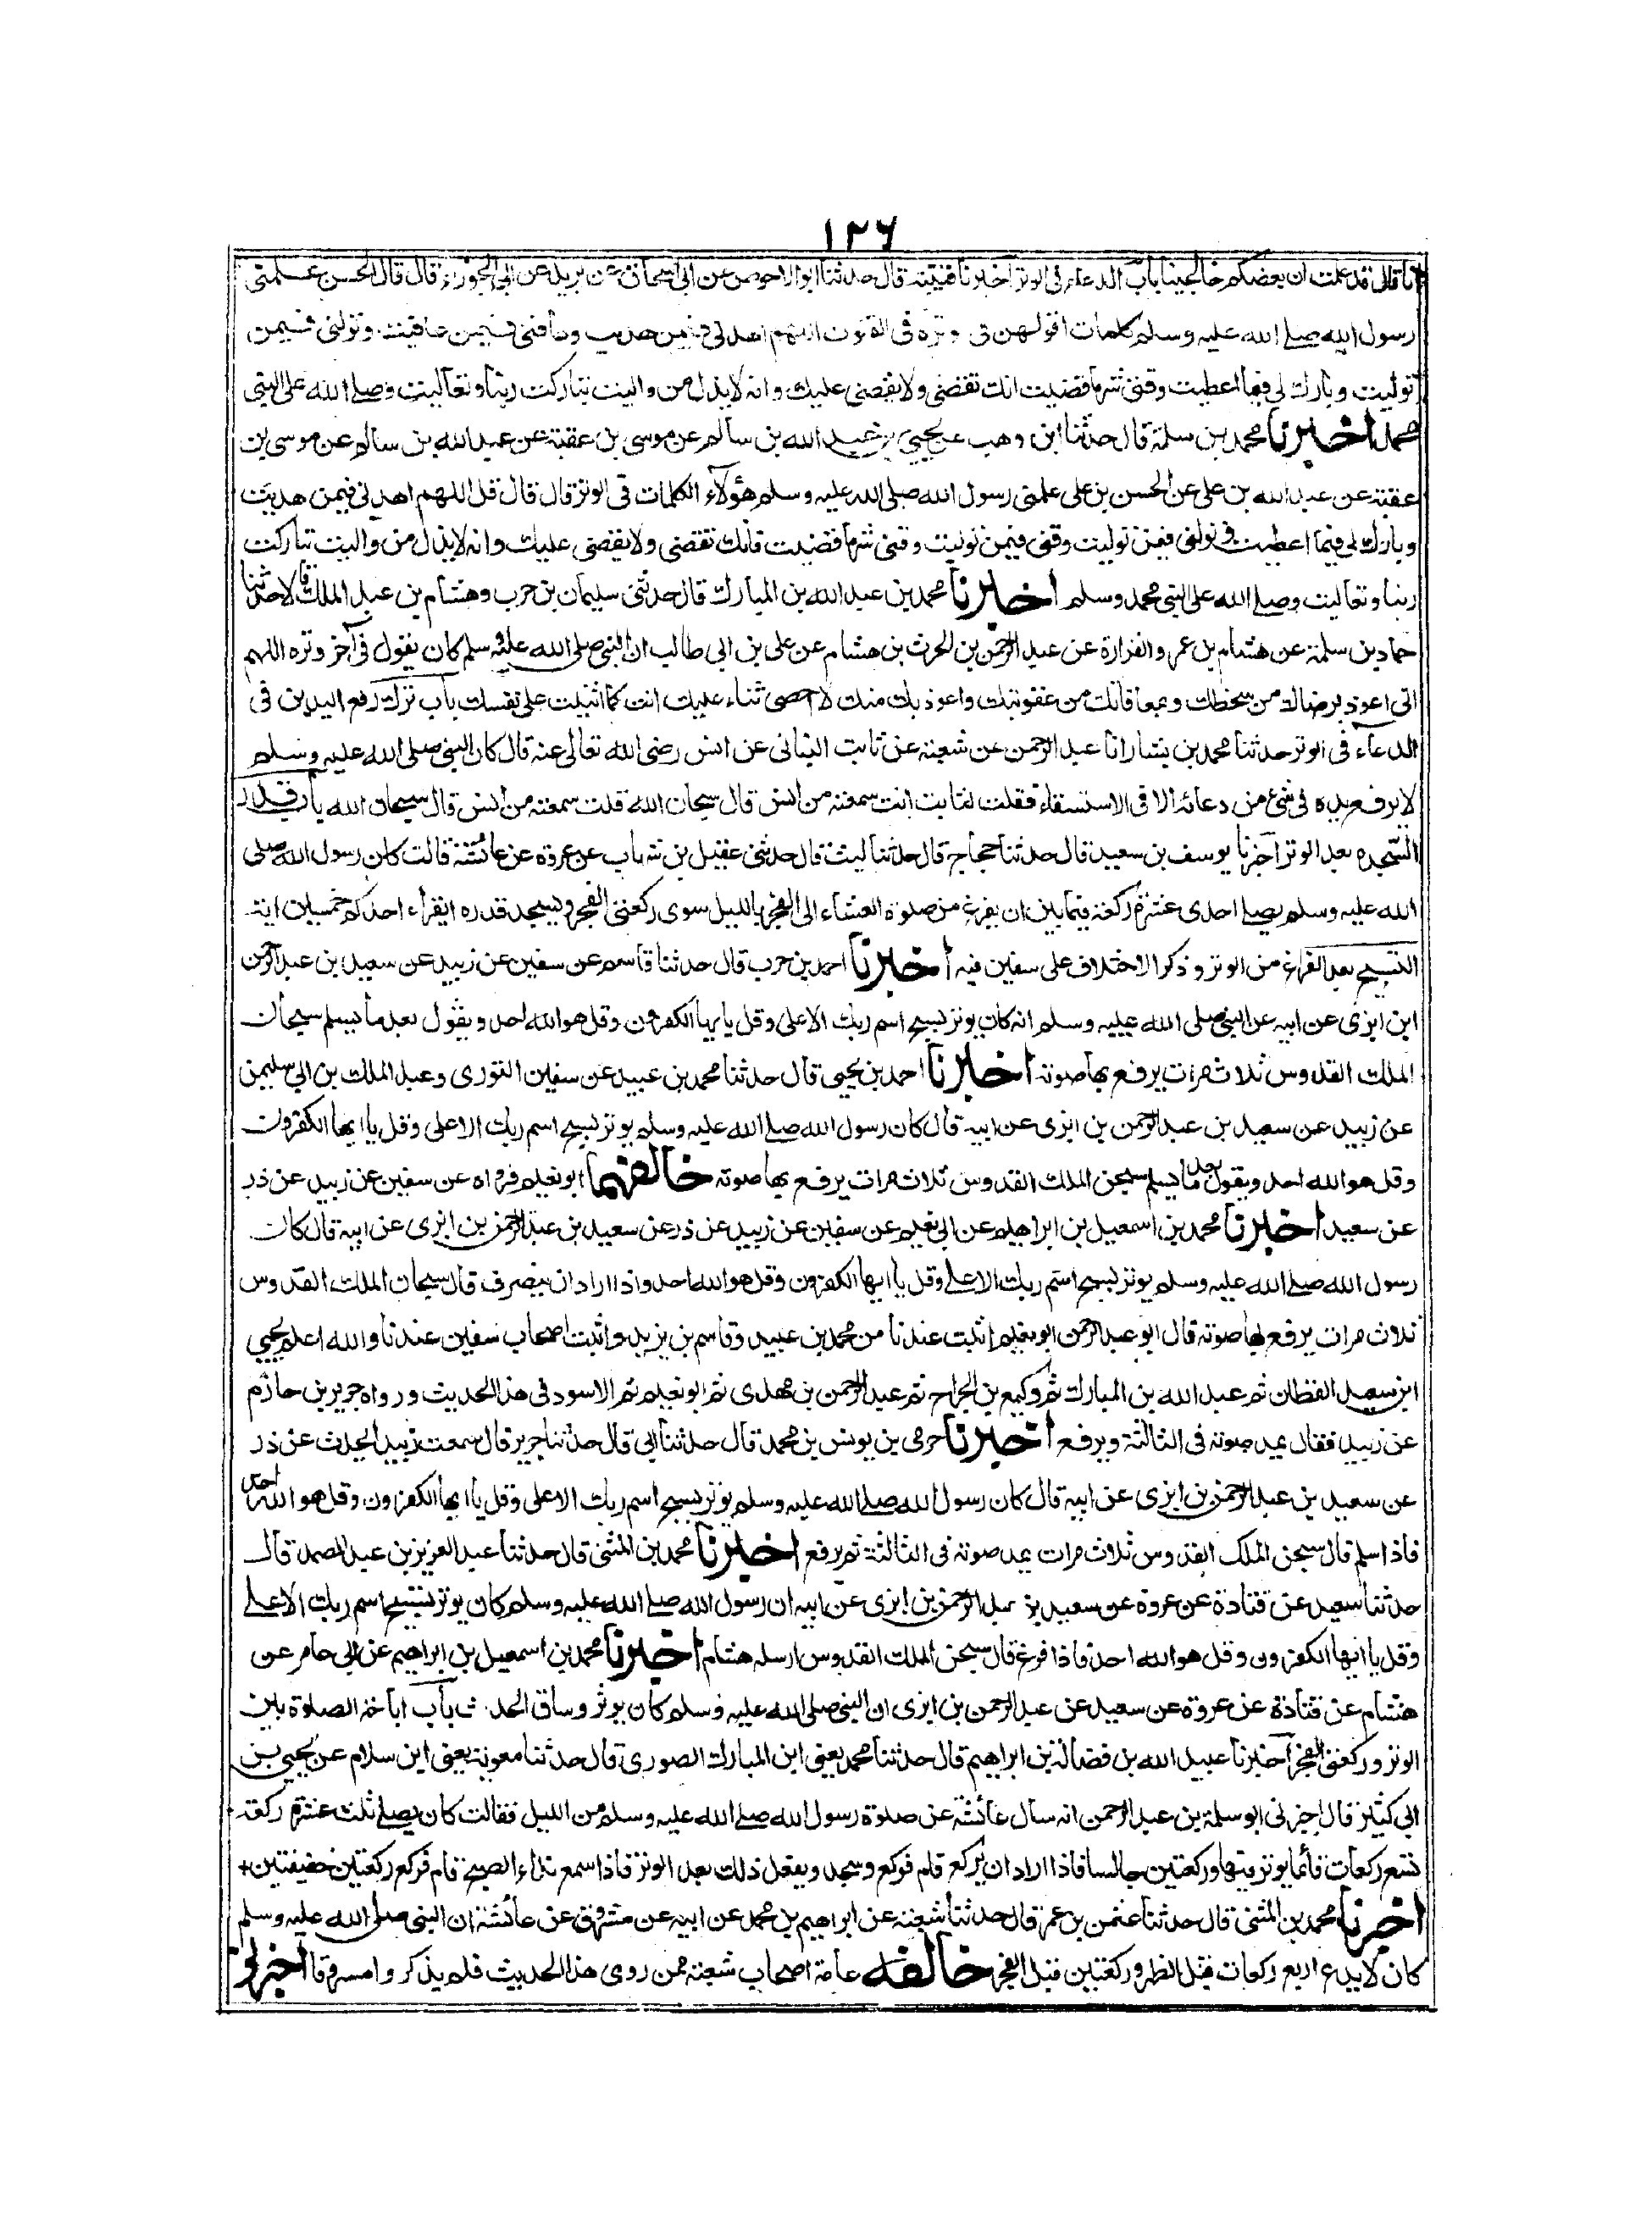 ١٢٦
انا قال قد علمت ان بعضكم خالجنيها باب الدعاء فى الوتر اخبرنا قتيبة قال حدثنا ابو الاحوص عن ابى اسحاق عن بريد عن ابى الجوزاء قال قال الحسن علمنى
رسول الله صلے الله عليه وسلم كلمات اقولهن فى وتره فى القنوت اللهم اهدنى فيمن هديت وعافنى فيمن عافيت وتولنى فيمن
توليت وبارك لى فيما اعطيت وقنى شر ما قضيت انك تقضى ولا يقضى عليك وانه لا يذل من واليت تباركت ربنا وتعاليت وصلے الله على النبى
محمد اخبرنا محمد بن سلمة قال حدثنا ابن وهب عن يحيى بن عبد الله بن سالم عن موسى بن عقبة عن عبد الله بن سالم عن موسى بن
عقبة عن عبد الله بن على عن الحسن بن على علمنى رسول الله صلى الله عليه وسلم هؤلاء الكلمات فى الوتر قال قال قل اللهم اهدنى فيمن هديت
وبارك لى فيما اعطيت وتولنى فيمن توليت وقنى فيمن توليت وقنى شر ما قضيت فانك تقضى ولا يقضى عليك وانه لا يذل من واليت تباركت
ربنا وتعاليت وصلے الله على النبى محمد وسلم اخبرنا محمد بن عبد الله بن المبارك قال حدثنى سليمان بن حرب وهشام بن عبد الملك قالا حدثنا
حماد بن سلمة عن هشام بن عمرو الفزارة عن عبد الرحمن بن الحرث بن هشام عن على بن ابى طالب ان النبى صلى الله عليه وسلم كان يقول فى آخر وتره اللهم
انى اعوذ برضاك من سخطك وبمعافاتك من عقوبتك واعوذ بك منك لا احصى ثناء عليك انت كما اثنيت على نفسك باب ترك رفع اليدين فى
الدعاء فى الوتر حدثنا محمد بن بشار انا عبد الرحمن عن شعبة عن ثابت البنانى عن انس رضى الله تعالى عنه قال كان النبى صلى الله عليه وسلم
لا يرفع يده فى شئ من دعائه الا فى الاستسقاء فقلت لثابت انت سمعته من انس قال سبحان الله قلت سمعته من انس قال سبحان الله باب قدر
السجده بعد الوتر اخبرنا يوسف بن سعيد قال حدثنا حجاج قال حدثنا ليث قال حدثنى عقيل بن شهاب عن عروة عن عائشة قالت كان رسول الله صلى
الله عليه وسلم يصلے احدى عشرة ركعة فيما بين ان يفرغ من صلوة العشاء الى الفجر بالليل سوى ركعتى الفجر ويسجد قدره ايقراء احدكم خمسين اية
التسبيح بعد الفراغ من الوتر وذكر الاختلاف على سفين فيه اخبرنا احمد بن حرب قال حدثنا قاسم عن سفين عن زبيد عن سعيد بن عبد الرحمن
ابن ابزى عن ابيه عن النبى صلى الله عليه وسلم انه كان يوتر بسبح اسم ربك الاعلى وقل يايها الكفرون وقل هو الله احد ويقول بعد ما يسلم سبحان
الملك القدوس ثلاث مرات يرفع بها صوته اخبرنا احمد بن يحيى قال حدثنا محمد بن عبيد عن سفين الثورى وعبد الملك بن ابى سليمن
عن زبيد عن سعيد بن عبد الرحمن بن ابزى عن ابيه قال كان رسول الله صلے الله عليه وسلم يوتر بسبح اسم ربك الاعلى وقل يا ايها الكفرون
وقل هو الله احد ويقول بعد ما يسلم سبحن الملك القدوس ثلاث مرات يرفع بها صوته خالفهما ابو نعيم فرواه عن سفين عن زبيد عن ذر
عن سعيد اخبرنا محمد بن اسمعيل بن ابراهيم عن ابى نعيم عن سفين عن زبيد عن ذر عن سعيد بن عبد الرحمن بن ابزى عن ابيه قال كان
رسول الله صلے الله عليه وسلم يوتر بسبح اسم ربك الاعلے وقل يا ايها الكفرون وقل هو الله احد واذا اراد ان ينصرف قال سبحان الملك القدوس
ثلاث مرات يرفع بها صوته قال ابو عبد الرحمن ابو نعيم اثبت عندنا من محمد بن عبيد وقاسم بن يزيد واثبت اصحاب سفين عندنا والله اعلم يحيى
ابن سعيد القطان ثم عبد الله بن المبارك ثم وكيع بن الجراح ثم عبد الرحمن بن مهدى ثم ابو نعيم ثم الاسود فى هذا الحديث ورواه جرير بن حازم
عن زبيد فقال يمد صوته فى الثالثة ويرفع اخبرنا حرمى بن يونس بن محمد قال حدثنا ابى قال حدثنا جرير قال سمعت زبيد ايحدث عن ذر
عن سعيد بن عبد الرحمن بن ابزى عن ابيه قال كان رسول الله صلے الله عليه وسلم يوتر بسبح اسم ربك الاعلى وقل يا ايها الكفرون وقل هو الله احد
فاذا سلم قال سبحن الملك القدوس ثلاث مرات يمد صوته فى الثالثة ثم يرفع اخبرنا محمد بن المثنى قال حدثنا عبد العزيز بن عبد الصمد قال
حدثنا سعيد عن قتادة عن عروة عن سعيد بن عبد الرحمن بن ابزى عن ابيه ان رسول الله صلے الله عليه وسلم كان يوتر بسبح اسم ربك الاعلے
وقل يا ايها الكفرون وقل هو الله احد فاذا فرغ قال سبحن الملك القدوس ارسله هشام اخبرنا محمد بن اسمعيل بن ابراهيم عن ابى عامر عن
هشام عن قتادة عن عروة عن سعيد عن عبد الرحمن بن ابزى ان النبى صلى الله عليه وسلم كان يوتر وساق الحديث باب اباحة الصلوة بين
الوتر وركعتى الفجر اخبرنا عبيد الله بن فضالة بن ابراهيم قال حدثنا محمد يعنى ابن المبارك الصورى قال حدثنا معوية يعنى ابن سلام عن يحيى بن
ابى كثير قال اخبرنى ابو سلمة بن عبد الرحمن انه سال عائشة عن صلوة رسول الله صلے الله عليه وسلم من الليل فقالت كان يصلے ثلث عشرة ركعة
تسع ركعات قائما يوتر فيها وركعتين جالسا فاذا اراد ان يركع قام فركع وسجد ويفعل ذلك بعد الوتر فاذا سمع نداء الصبح قام فركع ركعتين خفيفتين
اخبرنا محمد بن المثنى قال حدثنا عثمن بن عمر قال حدثنا شعبة عن ابراهيم بن محمد عن ابيه عن مسروق عن عائشة ان النبى صلى الله عليه وسلم
كان لا يدع اربع ركعات قبل الظهر وركعتين قبل الفجر خالفه عامة اصحاب شعبة ممن روى هذا الحديث فلم يذكروا مسروقا اخبرنا